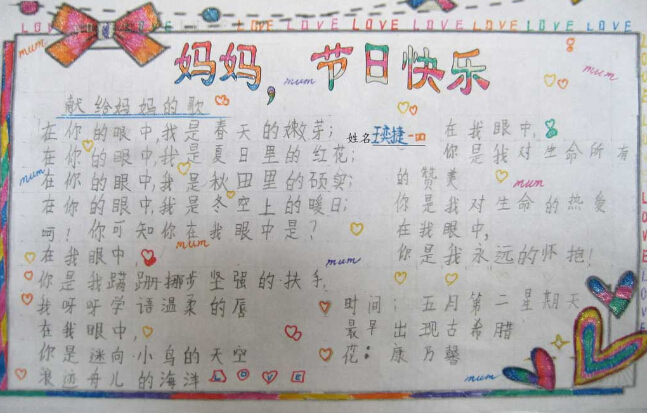 LOVE LOVE LOVE LOVE LOVE LOVE
妈妈，节日快乐
献给妈妈的歌
在你的眼中,我是春天的嫩芽;
在你的眼中,我是夏日里的红花;
在你的眼中,我是秋田里的硕实;
在你的眼中我是冬空上的暖日;
呵!你可知你在我眼中是?
在我眼中,
你是我蹒跚挪步坚强的扶手,
我呀呀学语温柔的唇
在我眼中,
你是迷向小鸟的天空
浪迹舟儿的海洋 LOVE
姓名 王奕捷 一四
在我眼中,
你是我对生命所有
的赞美
你是我对生命的热爱
在我眼中,
你是我永远的怀抱!
时间: 五月第二星期天
最早出现古希腊
花: 康乃馨
mum
mum
mum
mum
mum
mum
mum
mum